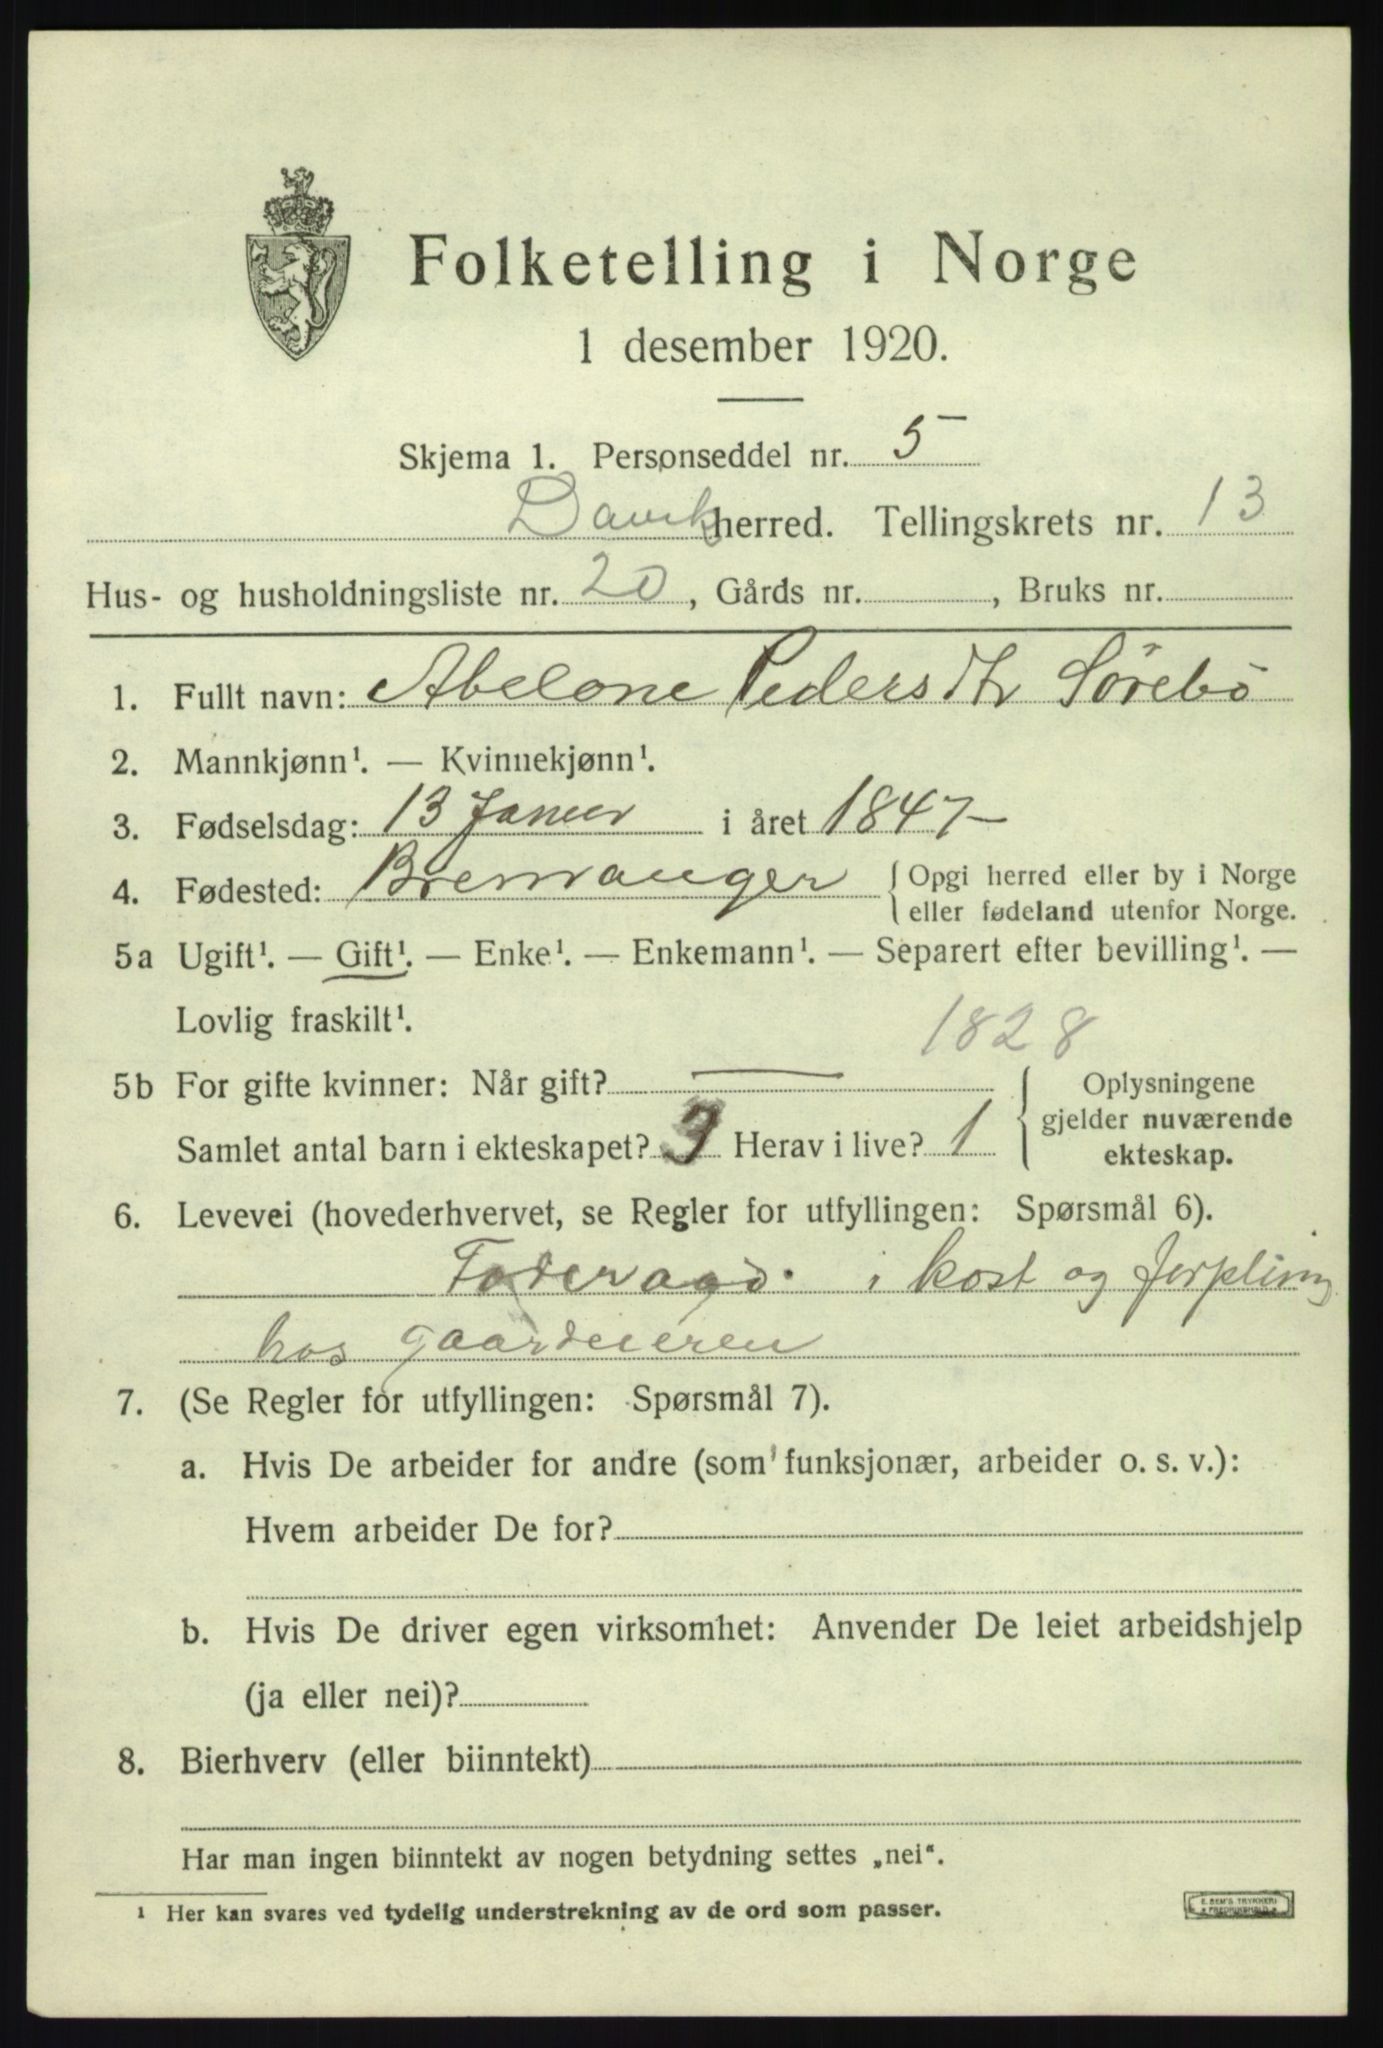 Folketelling i Norge
1 desember 1920.
Skjema 1. Personseddel nr. 5
Davik herred. Tellingskrets nr. 13
Hus- og husholdningsliste nr. 20, Gårds nr. , Bruks nr.
1. Fullt navn: Abelone Pedersdtr Sörebö
2. Mannkjønn¹. — Kvinnekjønn¹.
3. Fødselsdag: 13 Januer i året 1847
4. Fødested: Bremanger { Opgi herred eller by i Norge
eller fødeland utenfor Norge.
5a Ugift¹. — Gift¹. — Enke¹. — Enkemann¹. — Separert efter bevilling¹. —
Lovlig fraskilt¹.
1828
5b For gifte kvinner: Når gift? — { Oplysningene
gjelder nuværende
Samlet antal barn i ekteskapet? 3 Herav i live? 1
ekteskap.
6. Levevei (hovederhvervet, se Regler for utfyllingen: Spørsmål 6).
i kost og forpling
hos gaardeieren
7. (Se Regler for utfyllingen: Spørsmål 7).
a. Hvis De arbeider for andre (som funksjonær, arbeider o. s. v.):
Hvem arbeider De for?
b. Hvis De driver egen virksomhet: Anvender De leiet arbeidshjelp
(ja eller nei)?
8. Bierhverv (eller biinntekt)
Har man ingen biinntekt av nogen betydning settes „nei“.
¹ Her kan svares ved tydelig understrekning av de ord som passer.
E. SEM'S TRYKKERI
FREDRIKSHALD